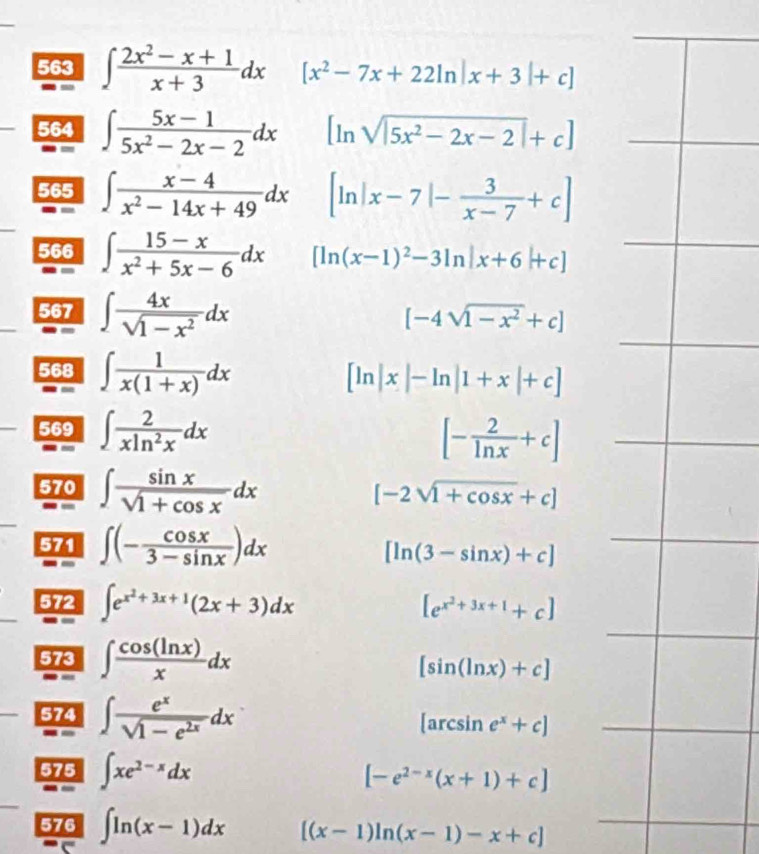 563 ∫ (2x² − x + 1)/(x + 3) dx [x² − 7x + 22ln|x + 3| + c]
564 ∫ (5x − 1)/(5x² − 2x − 2) dx [ln √|5x² − 2x − 2| + c]
565 ∫ (x − 4)/(x² − 14x + 49) dx [ln|x − 7| − 3/(x − 7) + c]
566 ∫ (15 − x)/(x² + 5x − 6) dx [ln(x−1)²−3ln|x+6|+c]
567 ∫ 4x/√(1 − x²) dx [−4√(1 − x²) + c]
568 ∫ 1/(x(1 + x)) dx [ln|x| − ln|1 + x| + c]
569 ∫ 2/(xln²x) dx [−2/lnx + c]
570 ∫ sin x/√(1 + cos x) dx [−2√(1 + cosx) + c]
571 ∫(−cosx/(3 − sinx))dx [ln(3 − sinx) + c]
572 ∫e^(x² + 3x + 1)(2x + 3)dx [e^(x² + 3x + 1) + c]
573 ∫ cos(lnx)/x dx [sin(lnx) + c]
574 ∫ eˣ/√(1 − e²ˣ) dx [arcsin eˣ + c]
575 ∫xe^(2−x)dx [−e^(2−x)(x + 1) + c]
576 ∫ln(x − 1)dx [(x − 1)ln(x − 1) − x + c]